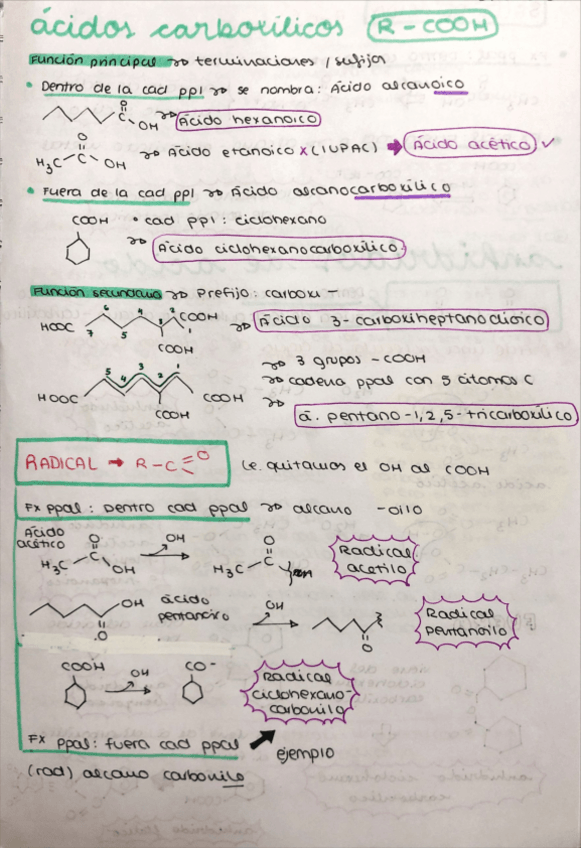 ácidos carboxílicos R-COOH
Función principal ↝ terminaciones / sufijos
• Dentro de la cad ppl ↝ se nombra: Ácido alcanoico
C O OH ↝ Ácido hexanoico
H₃C C O OH ↝ Ácido etanoico x (IUPAC) ➡ Ácido acético ✓
• Fuera de la cad ppl ↝ Ácido alcanocarboxílico
COOH • cad ppl: ciclohexano
↝ Ácido ciclohexanocarboxílico
Función secundaria ↝ Prefijo: carboxi-
HOOC 7 6 5 4 3 2 1 COOH COOH ↝ Ácido 3-carboxiheptanodioico
↝ 3 grupos -COOH
HOOC 5 4 3 2 1 COOH COOH ↝ cadena ppal con 5 átomos C
↝ á. pentano-1,2,5-tricarboxílico
RADICAL → R-C≡O le quitamos el OH al COOH
Fx ppal: Dentro cad ppal ↝ alcano -oilo
Ácido acético H₃C C O OH OH H₃C C O Radical acetilo
OH O ácido pentanoico OH O Radical pentanoilo
COOH OH CO- Radical ciclohexano-carbonilo
Fx ppal: fuera cad ppal ejemplo
(rad) alcano carbonilo